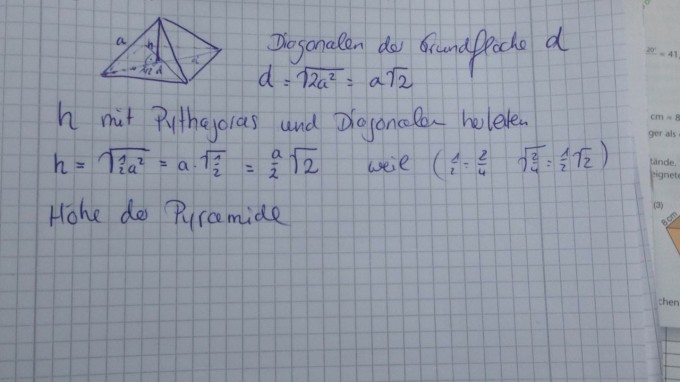 a
h
½ d
a
Diagonalen der Grundfläche d
d = √2a² = a√2
h mit Pythagoras und Diagonalen herleiten
h = √½a² = a · √½ = a/2 √2 weil (½ = 2/4 √2/4 = ½√2)
Höhe der Pyramide
= 41,
cm = 8
ger als
tände,
eignete
(3)
8 cm
chen